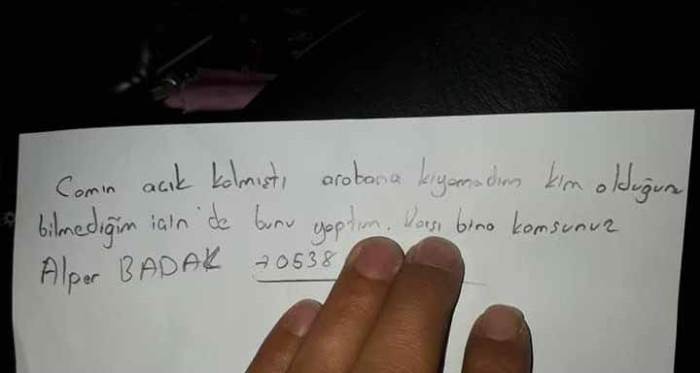 Camın acık kalmıstı arabana kıyamadım kim olduğunu
bilmediğim icin de bunu yaptım. Karsı bina komsunuz
Alper BADAK → 0538